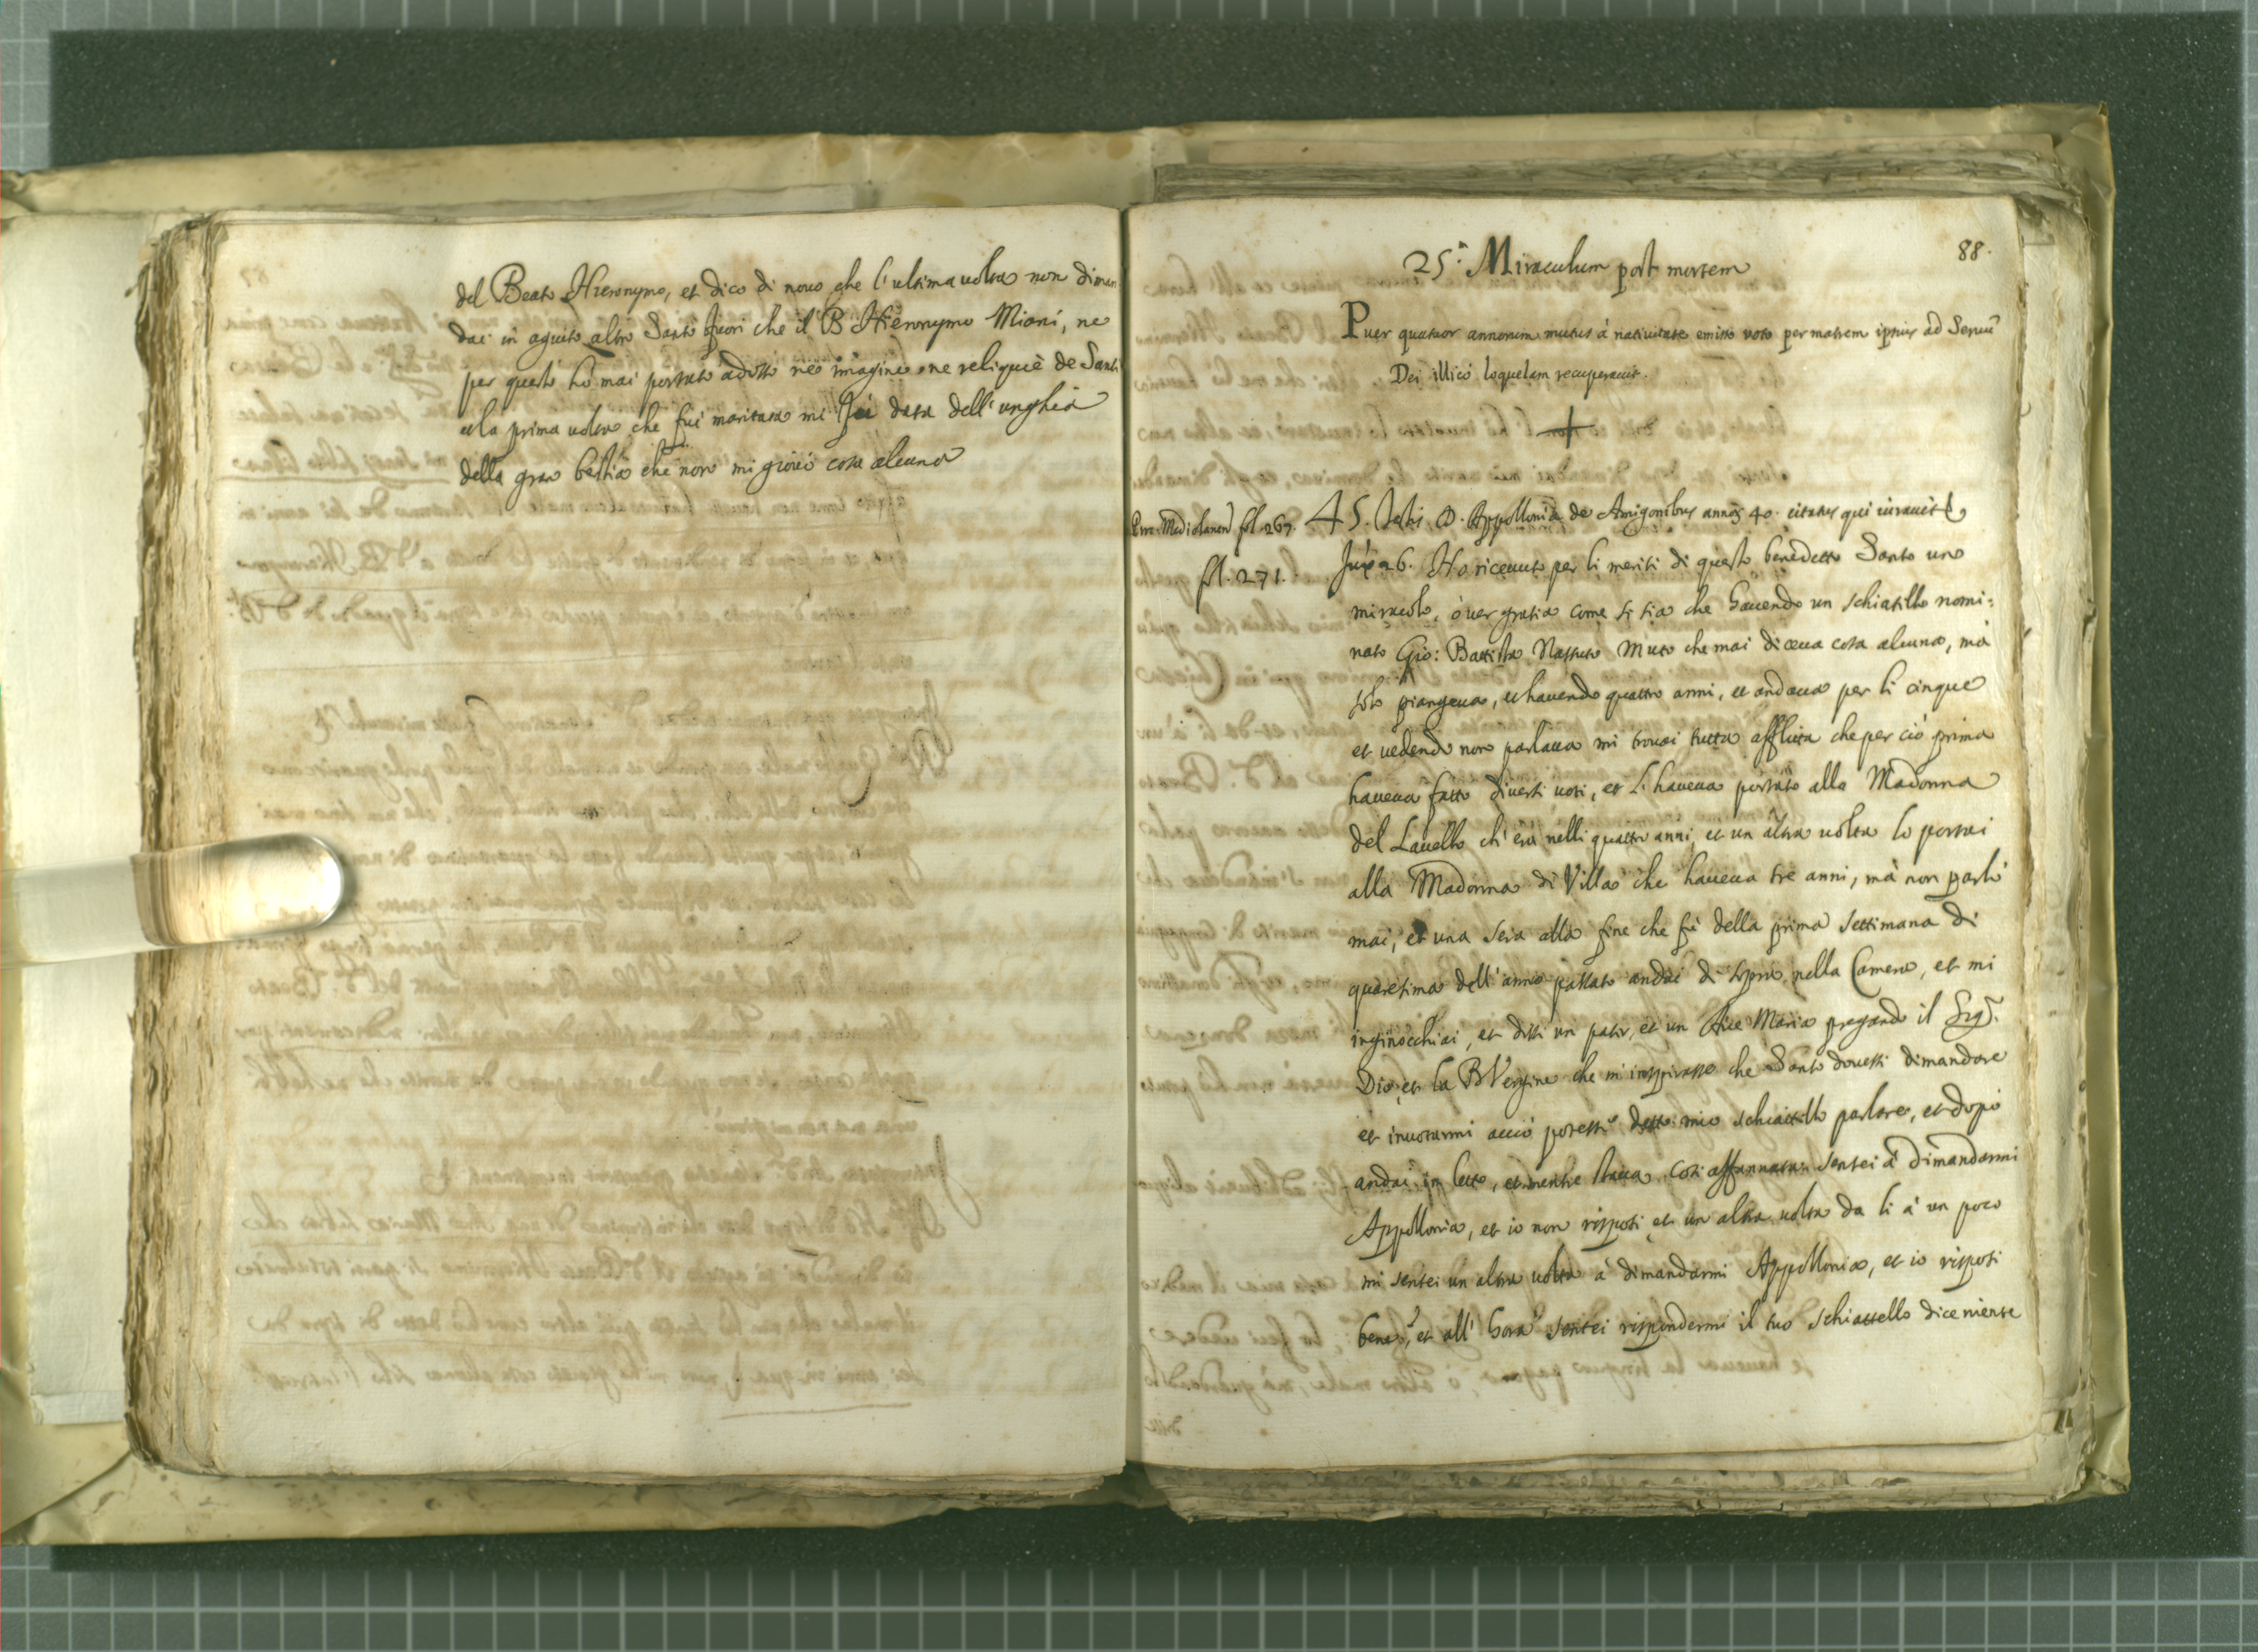 del Beato Hieronymo, et dico di nouo che l'ultima uolta non diman
dai in aguito altro Santo fuori che il B Hieronymo Miani, ne
per questo hò mai portato adosso ne imagine ne reliquie de Santi
et la prima uolta che fui maritata mi fù data dell'unghia
della gran bestia che non mi giouò cosa alcuna
88.
25.^ Miraculum post mortem
Puer quatuor annorum mutus à natiuitate emisso voto per matrem ipsius ad Seruũ
Dei illicò loquelam recuperauit.
Proc. Mediolanen fol. 267.
fol. 271.
45. Testis D. Appollonia de Amigonibus annoꝝ 40. citatus qui iurauit &
26. Ho riceuuto per li meriti di questo benedetto Santo uno
miracolo, ò uer gratia come si sia che hauendo un schiatillo nomi:
nato Gio: Battista Muto che mai diceua cosa alcuna, mà
solo piangeua, et hauendo quattro anni, et andaua per li cinque
et uedendo non parlaua mi trouai tutta afflitta che per ciò prima
haueua fatto diuersi uoti, et l'haueua portato alla Madonna
del Lauello ch'era nelli quattro anni, et un altra uolta lo portai
alla Madonna di Villa che haueua tre anni, mà non parlò
mai, et una sera alla fine che fù della prima settimana di
quaresima dell'anno passato andai di sopra nella Camera, et mi
inginocchiai, et dissi un pater, et un Aue Maria pregando il Sig.r
Dio, et la B Vergine che mi inspirasse che Santo douessi dimandare
et inuocarmi acciò potesse detto mio schiattillo parlare, et dopò
andai in letto, et mentre staua così affannata sentei à dimandarmi
Appollonia, et io non risposi et un altra uolta da li à un poco
mi sentei un altra uolta à dimandarmi Appollonia, et io risposi
bene, et all'hora sentei rispondermi il tuo schiattello dice niente